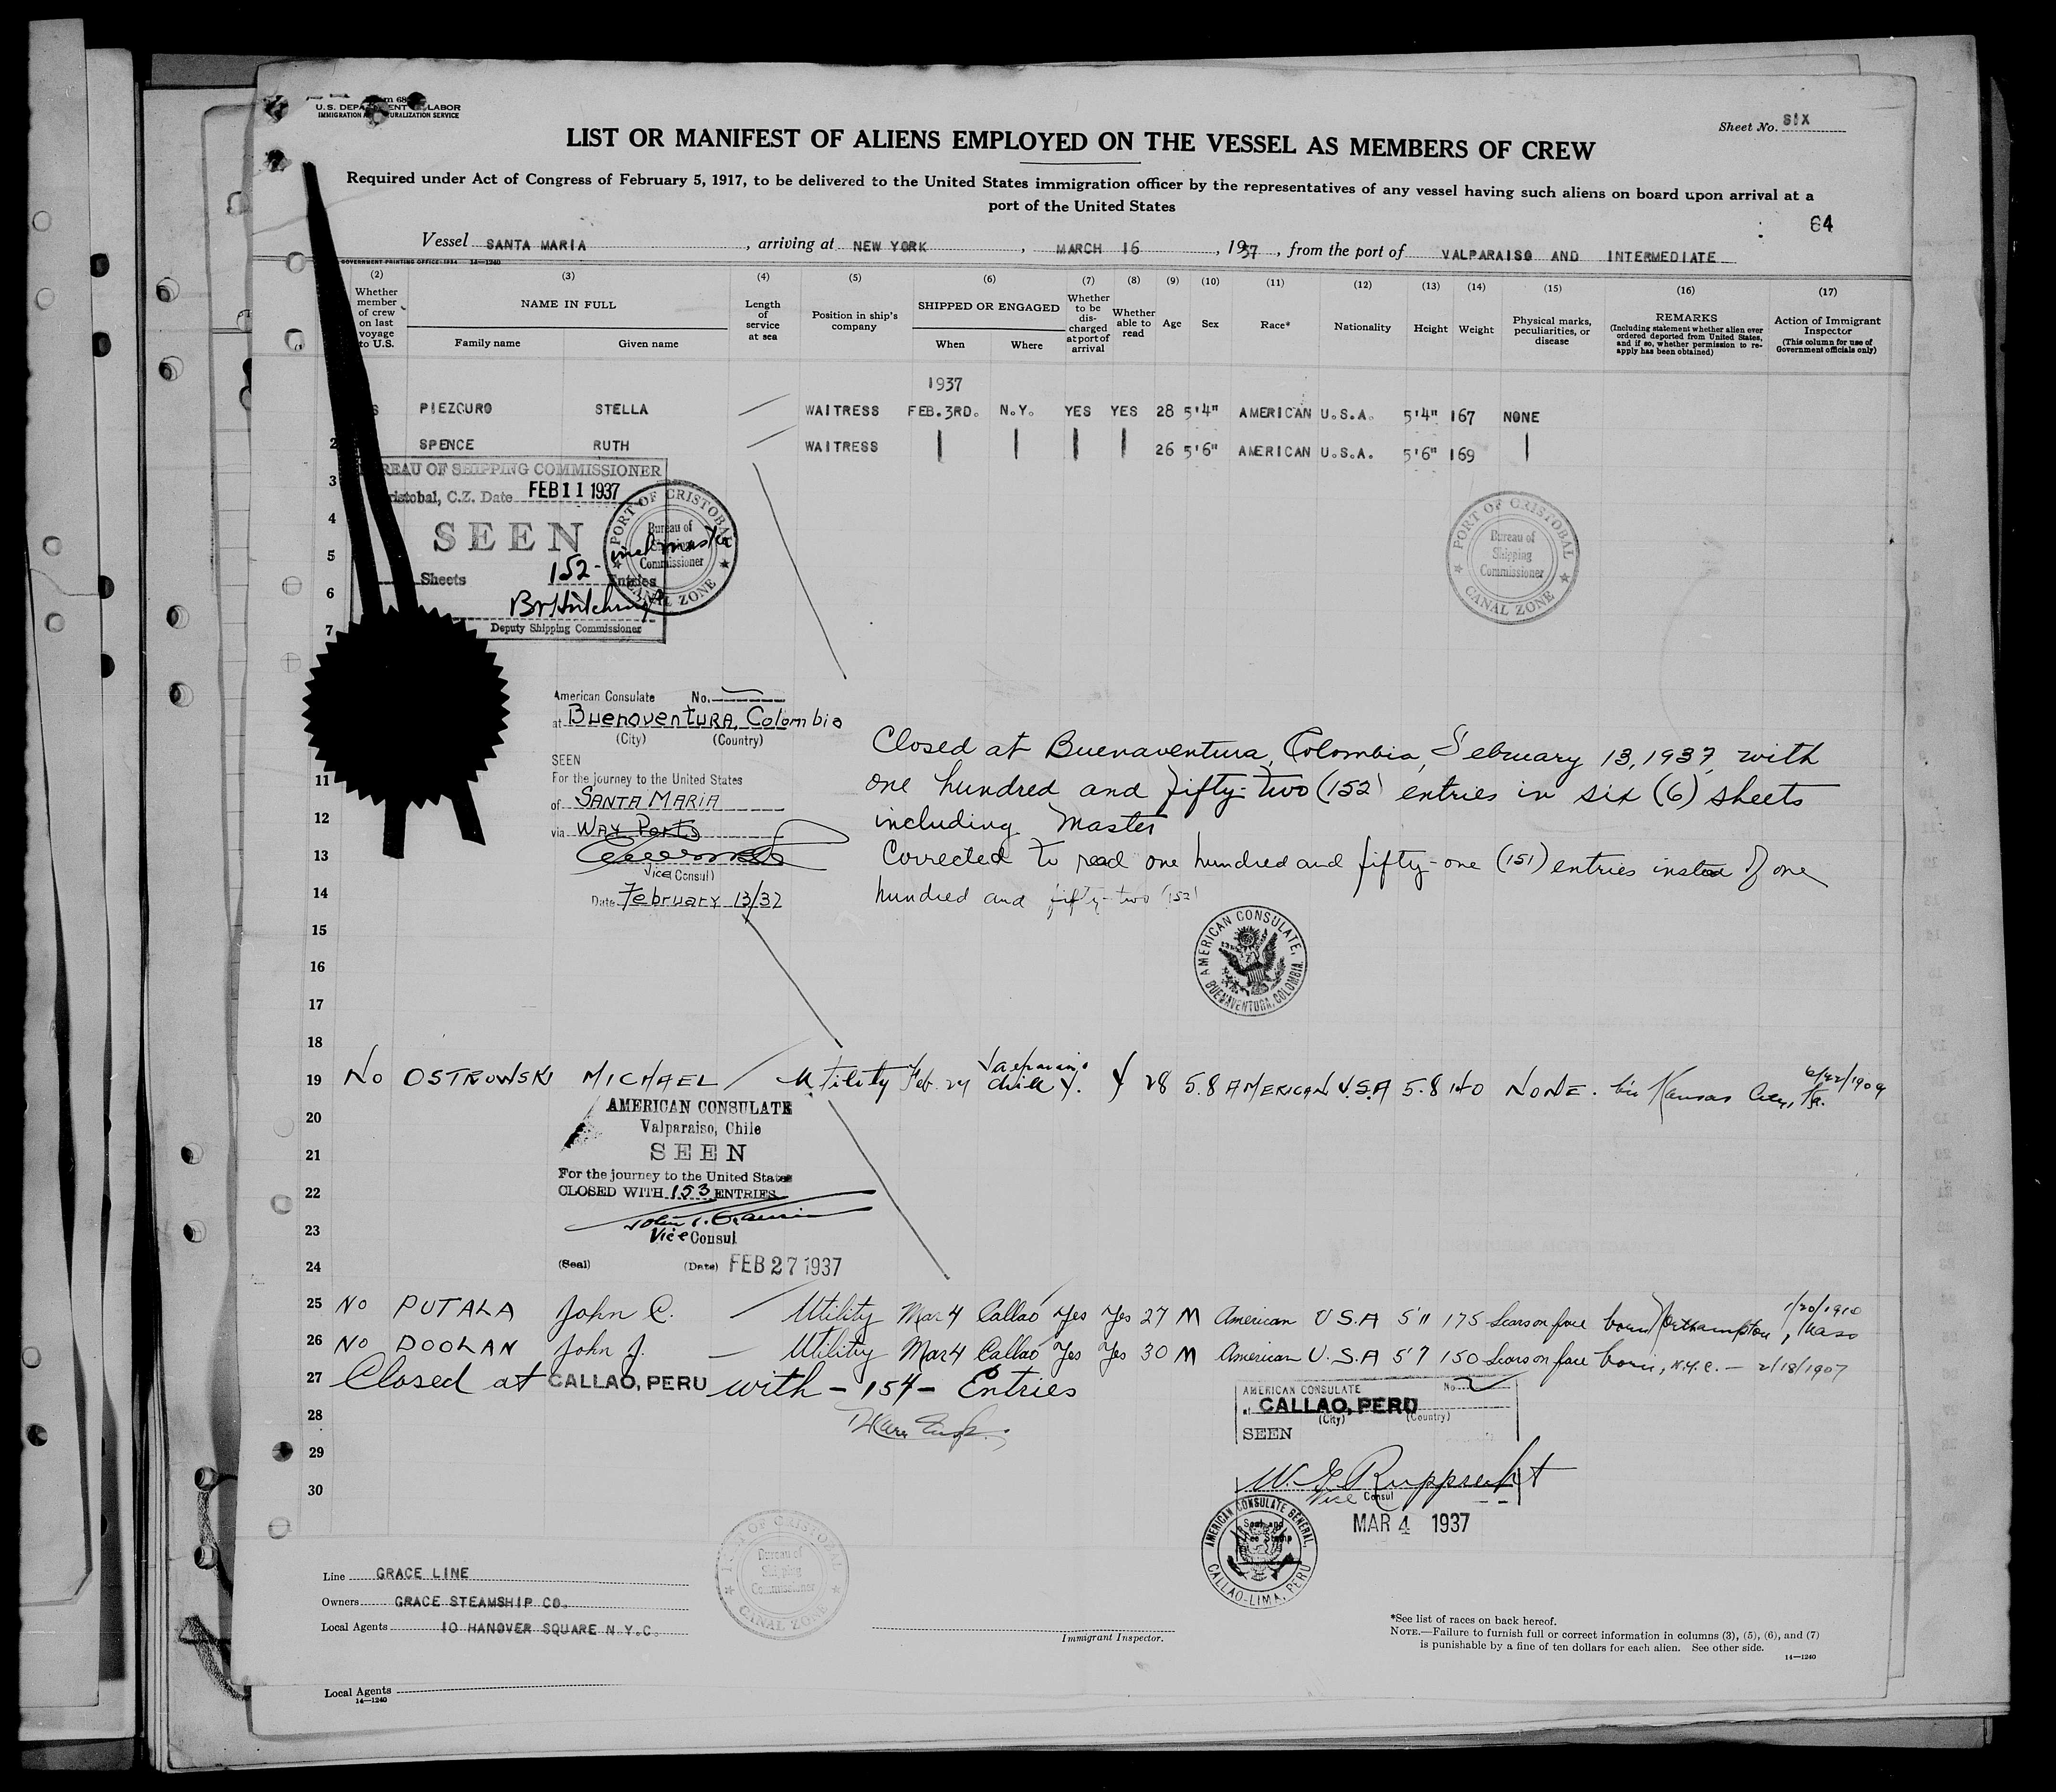 U.S. DEPARTMENT OF LABOR
IMMIGRATION NATURALIZATION SERVICE
Sheet No. SIX
LIST OR MANIFEST OF ALIENS EMPLOYED ON THE VESSEL AS MEMBERS OF CREW
Required under Act of Congress of February 5, 1917, to be delivered to the United States immigration officer by the representatives of any vessel having such aliens on board upon arrival at a
port of the United States
64
Vessel SANTA MARIA, arriving at NEW YORK, MARCH 16, 1937, from the port of VALPARAISO AND INTERMEDIATE
GOVERNMENT PRINTING OFFICE: 1934 14—1240
(2) (3) (4) (5) (6) (7) (8) (9) (10) (11) (12) (13) (14) (15) (16) (17)
Whether member of crew on last voyage to U.S.
NAME IN FULL
Family name Given name
Length of service at sea
Position in ship's company
SHIPPED OR ENGAGED
When Where
Whether to be discharged at port of arrival
Whether able to read
Age Sex Race* Nationality Height Weight
Physical marks, peculiarities, or disease
REMARKS
(Including statement whether alien ever ordered deported from United States, and if so, whether permission to reapply has been obtained)
Action of Immigrant Inspector
(This column for use of Government officials only)
1937
S PIEZCURO STELLA WAITRESS FEB.3RD. N.Y. YES YES 28 5'4" AMERICAN U.S.A. 5'4" 167 NONE
2 SPENCE RUTH WAITRESS 26 5'6" AMERICAN U.S.A. 5'6" 169
BUREAU OF SHIPPING COMMISSIONER
3 Cristobal, C.Z. Date FEB 11 1937
4 SEEN
5 Sheets 152 Entries
incl master
6
7 Deputy Shipping Commissioner
PORT OF CRISTOBAL
Bureau of Shipping Commissioner
CANAL ZONE
PORT OF CRISTOBAL
Bureau of
Shipping
Commissioner
CANAL ZONE
American Consulate No.
at Buenaventura, Colombia
(City) (Country)
SEEN
For the journey to the United States
of SANTA MARIA
via WAY Ports
Vice Consul
Date February 13/37
11
12
13
14
Closed at Buenaventura, Colombia, February 13, 1937 with
one hundred and fifty-two (152) entries in six (6) sheets
including Master
Corrected to read one hundred and fifty-one (151) entries instead of one
hundred and fifty-two (152)
AMERICAN CONSULATE,
BUENAVENTURA, COLOMBIA.
15
16
17
18
19 No OSTROWSKI MICHAEL Utility Feb. 24 Valparaiso Chile Y. Y 28 5.8 AMERICAN U.S.A 5.8 140 NONE. Kansas City, 6/22/1909
20
21
22
23
24
AMERICAN CONSULATE
Valparaiso, Chile
SEEN
For the journey to the United States
CLOSED WITH 153 ENTRIES
Vice Consul
(Seal) (Date) FEB 27 1937
25 No PUTALA John C. Utility Mar 4 Callao Yes Yes 27 M American U.S.A 5'11 175 Scars on face born Northampton, Mass 1/20/1910
26 No DOOLAN John J. Utility Mar 4 Callao Yes Yes 30 M American U.S.A 5'7 150 Scars on face born, N.Y.C. — 2/18/1907
27 Closed at CALLAO, PERU with - 154 - Entries
28
29
30
AMERICAN CONSULATE No.
at CALLAO, PERU
(City) (Country)
SEEN
W. E. Rupprecht
Vice Consul
MAR 4 1937
AMERICAN CONSULATE GENERAL,
CALLAO-LIMA, PERU
PORT OF CRISTOBAL
Bureau of
Shipping
Commissioner
CANAL ZONE
Line GRACE LINE
Owners GRACE STEAMSHIP CO.
Local Agents 10 HANOVER SQUARE N.Y.C.
Immigrant Inspector.
*See list of races on back hereof.
NOTE.—Failure to furnish full or correct information in columns (3), (5), (6), and (7)
is punishable by a fine of ten dollars for each alien. See other side.
14—1240
Local Agents
14—1240